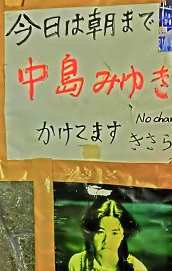 今日は朝まで
中島みゆき
No char
かけてます
きさら